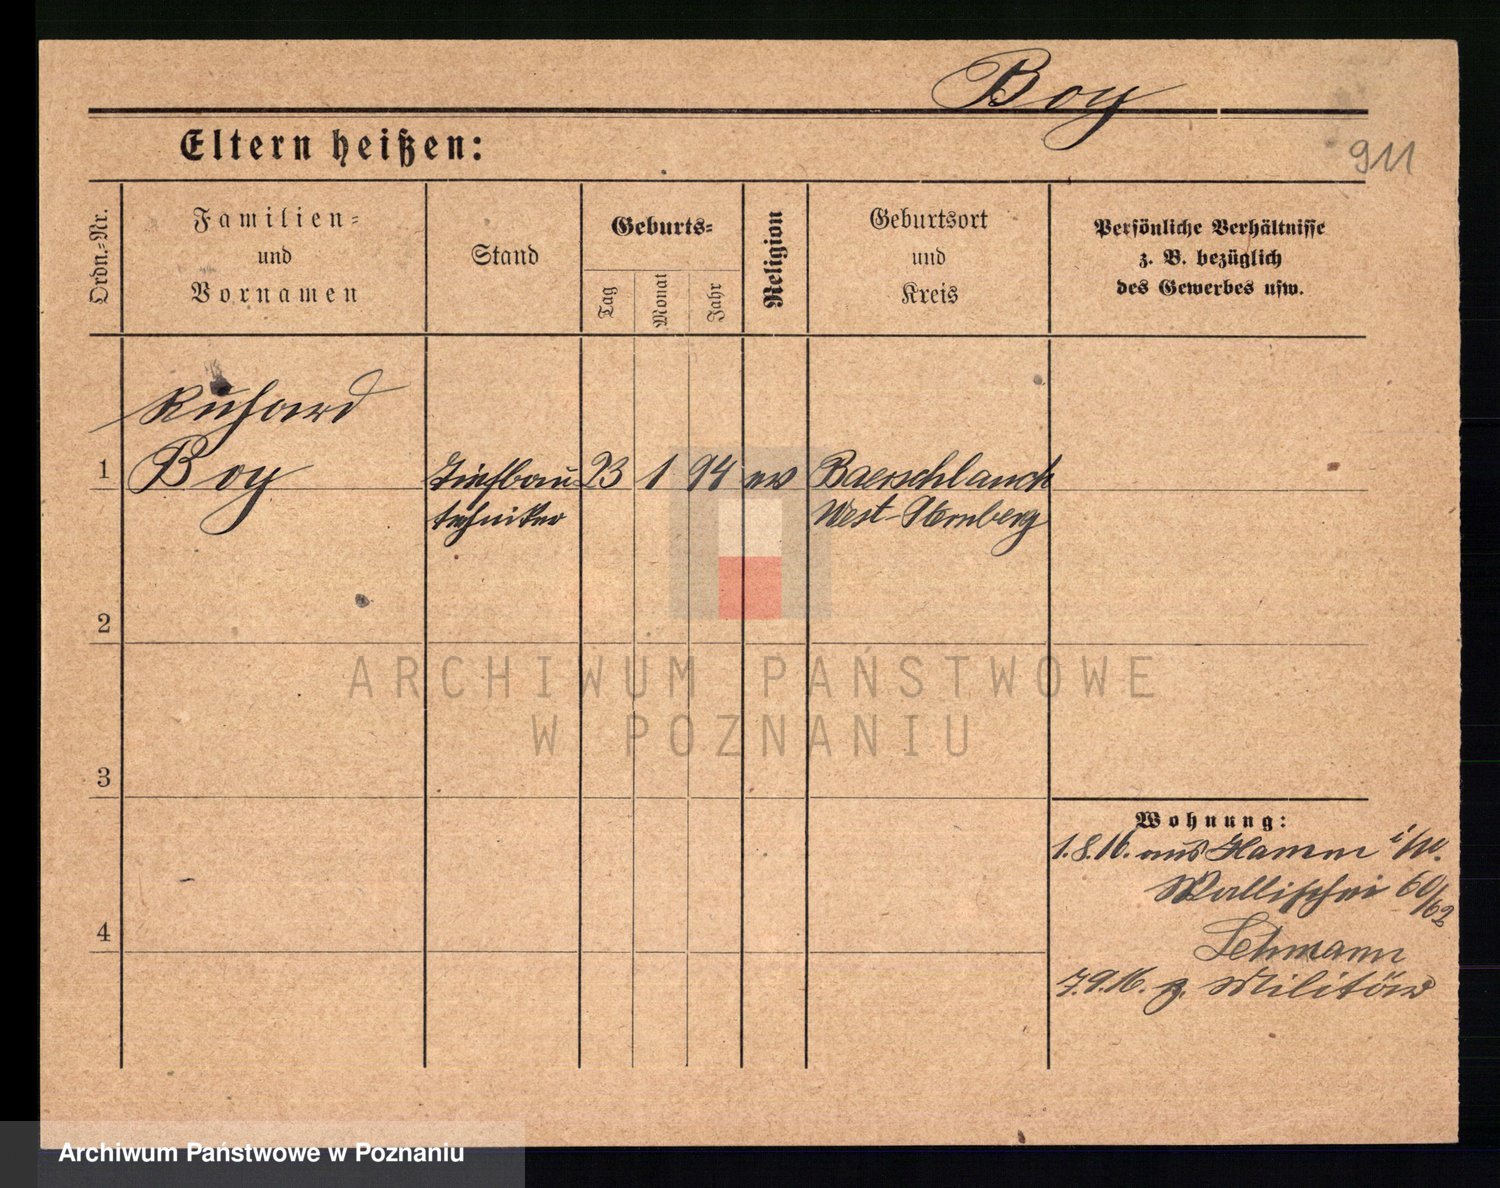 Boy
911
Eltern heißen:
Ordn.=Nr.
Familien=
und
Vornamen
Stand
Geburts=
Tag
Monat
Jahr
Religion
Geburtsort
und
Kreis
Persönliche Verhältnisse
z. B. bezüglich
des Gewerbes usw.
Richard
1 Boy Tiefbau 23 1 94 ev Baerschlauch
techniker West-Sternberg
2
3
4
Wohnung:
1.8.16. aus Hamm i/W.
Wallischei 60/62
Lehmann
7.9.16. z. Militär
ARCHIWUM PAŃSTWOWE
W POZNANIU
Archiwum Państwowe w Poznaniu